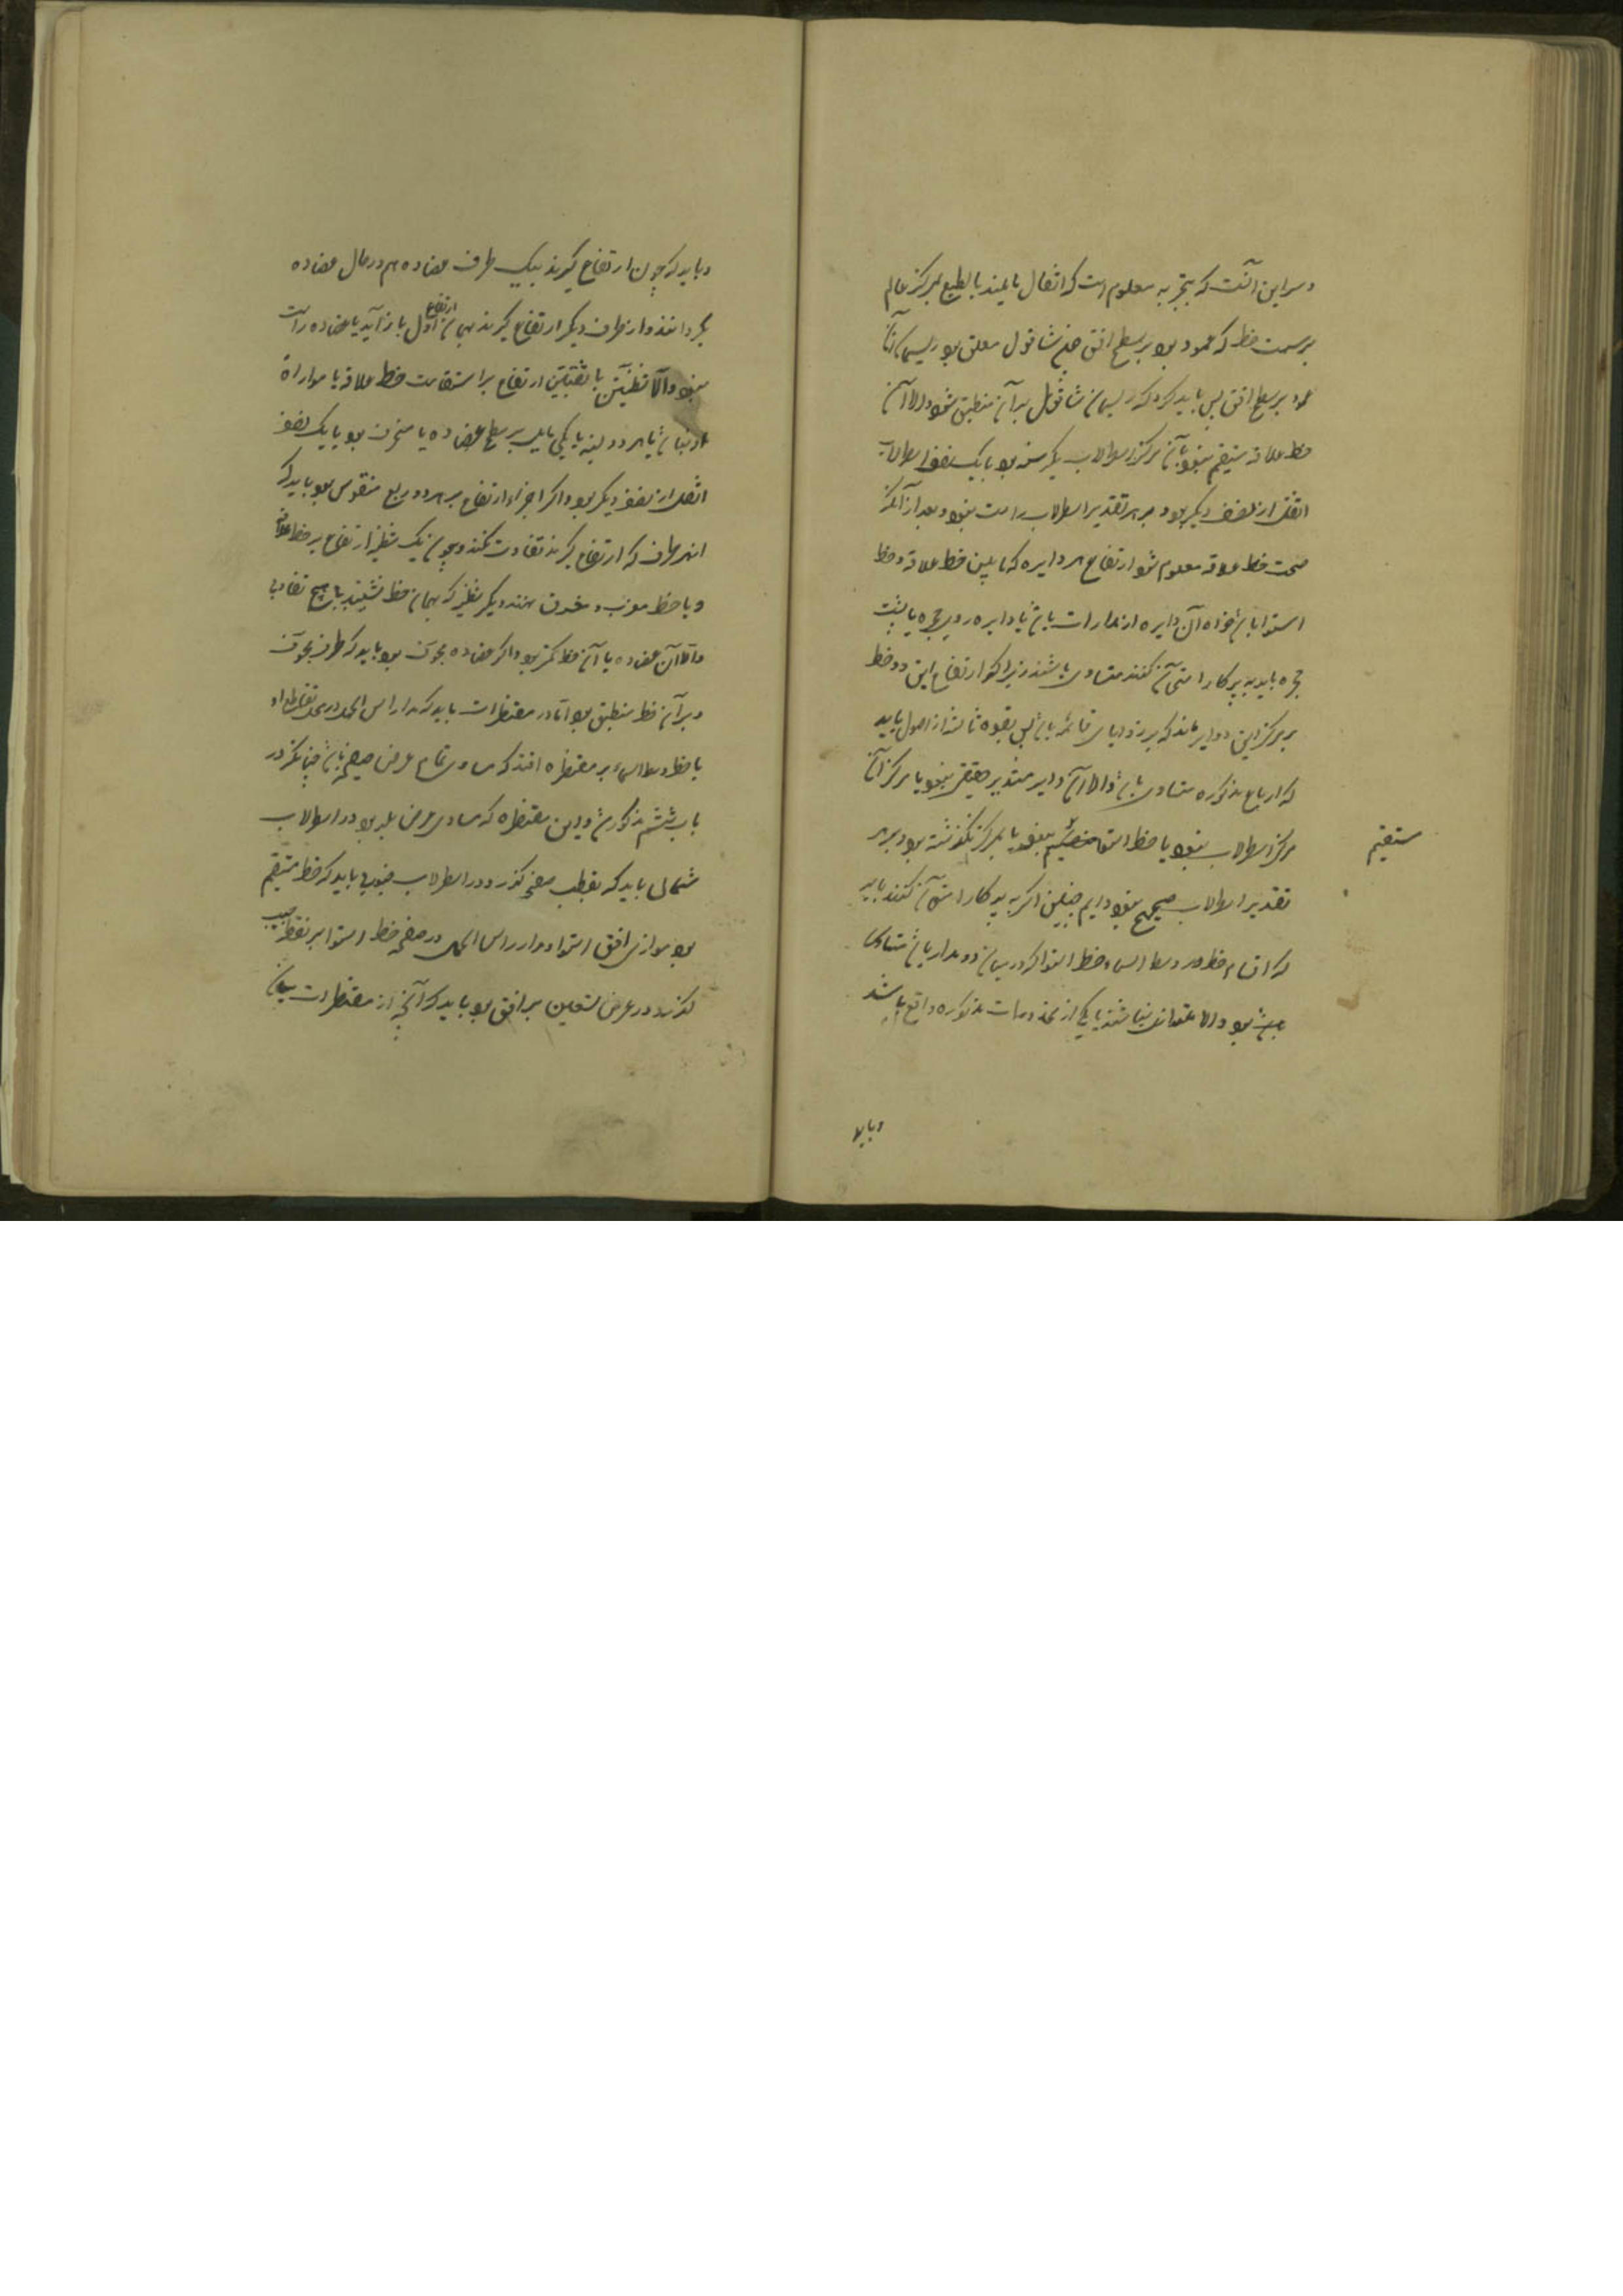 و سر این آنست که بتجربه معلوم است که اثقال مایلند بالطبع بمرکز عالم
بر سمت خطی که عمود بود بر سطح افق چنانچه شاقول معلق بود ریسمان آن
عمود بر سطح افق پس باید کرد که ریسمان شاقول بر آن منطبق شود و الا آن
خط علاقه مستقیم نبود یا آن مرکز اسطرلاب بکرسی بود یا یک نصف اسطرلاب
اثقل از نصف دیگر بود و بر هر تقدیر اسطرلاب راست نبود و بعد از آنکه
صحت خط علاقه معلوم شود ارباع هر دایره که مابین خط علاقه و خط
استوا باشد خواه آن دایره از مدارات باشد یا دایره روی حجره یا پشت
حجره باید به پرکار امتحان کنند متساوی باشند زیرا که ارتفاع این دو خط
بر مرکز این دوایر باشد که بر زوایای قائمه باشد پس بقوه ثالثه از اصول باید
که ارباع مذکوره متساوی باشد و الا آن دایره مستدیر حقیقی نبود یا مرکز آن
مرکز اسطرلاب نبود یا خط استوا مستقیم نبود یا بمرکز نگذشته بود و بر هر
مستقیم
تقدیر اسطرلاب صحیح نبود و ایم چنین اگر به پرکار امتحان کنند باید
که اقسام خط وسط السماء و خط استوا که در میان دو مدار باشد متساوی
باشد بود و الا متساوی نباشند یا یکی از محذورات مذکوره واقع باشد
و باید
و باید که چون ارتفاع گیرند بیک طرف عضاده هم در حال عضاده
بگردانند و از طرف دیگر ارتفاع گیرند همان ارتفاع اول باز آید یا عضاده راست
نبود و الا شظیتین یا ثقبتین ارتفاع بر استقامت خط علاقه یا موازاة
او نباشد یا هر دو لبنه یا یکی مایل بر سطح عضاده یا منحرف بود یا یک نصف
اثقل از نصف دیگر بود و اگر اجزاء ارتفاع بر هر دو ربع منقوس بود باید که
از هر طرف که ارتفاع گیرند تفاوت نکند و چون یک شظیه ارتفاع بر خط علاقه
و یا خط مغرب و مشرق نهند دیگر شظیه که بهمان خط نشیند یا هیچ تفاوت
و الا آن عضاده یا آن خط کژ بود و اگر عضاده محرف بود باید که طرف محرف
و بر آن خط منطبق بود اما در مقنطرات باید که مدار راس الحمل در محل تقاطع او
با خط وسط السماء بر مقنطره افتد که مساوی تمام عرض صفیحه باشد چنانکه در
باب ششم مذکور شد و این مقنطره که مساوی عرض بلد بود در اسطرلاب
شمالی باید که بقطب صفیحه گذرد و در اسطرلاب جنوبی باید که خط مستقیم
بود موازی افق استوا و مدار راس الحمل در صفیحه خط استوا بر نقطه جنوب
گذرد و در عرض تسعین بر افق بود باید که آنچه از مقنطرات میان